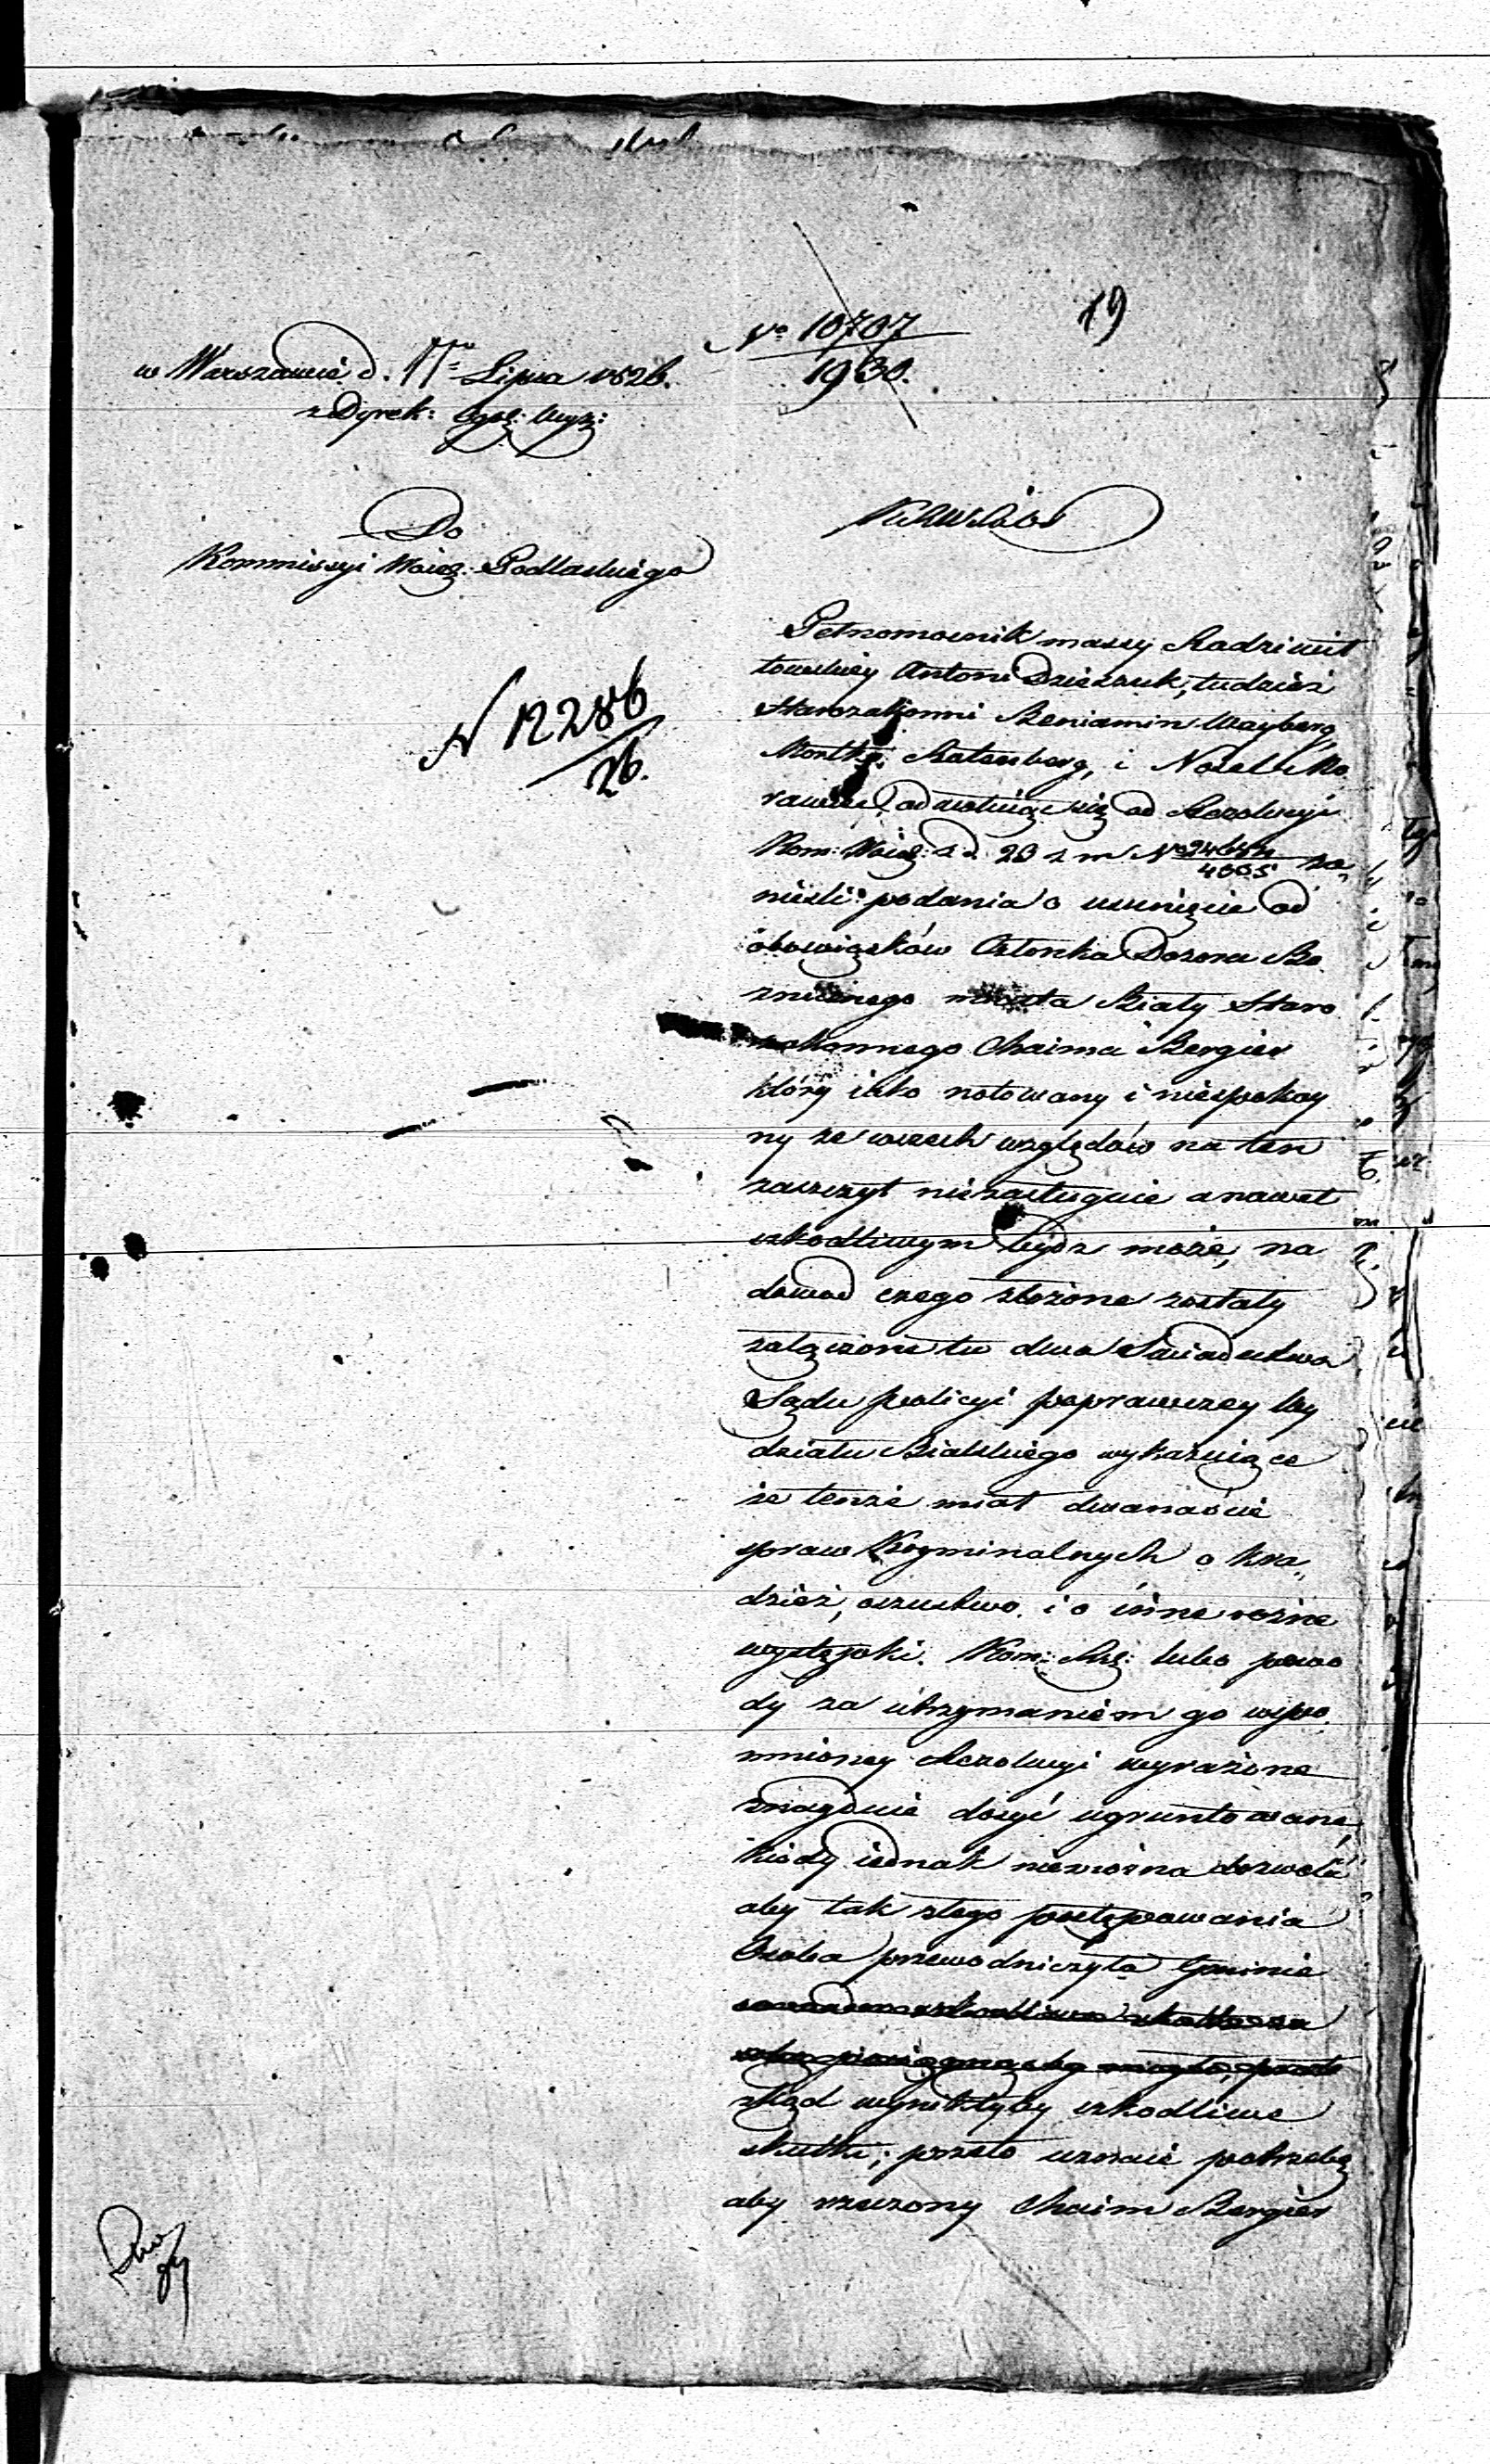 19
No 10707
1930.
w Warszawie d. 11go Lipca 1826.
z Dyrek: Ogól: Wyz:
Do
Kommissyi Woiew: Podlaskiego
N 12286
26.
Pełnomocnik massy Radziwił
łowskiey Antoni Dzieszuk, tudzież
Starozakonni Beniamin Wayberg,
Mortka Ratenberg, i Nosel Mo
rawiec, odwołuiąc się od Rezolucyi
Kom: Woiew: z d. 23 z m No 24642
4005 za„
nieśli podania o usunięcie od
obowiązków Członka Dozoru Bo
zniczego miasta Biały Staro
zakonnego Chaima Bergier
który iako notowany i niespokoy
ny ze wszech względów na ten
zaszczyt niezasługuie a nawet
szkodliwym bydz może, na
dowod czego złożone zostały
załączone tu dwa Swiadectwa
Sądu policyi poprawczey Wy
działu Bialskiego wykazuiące
że tenże miał dwanaście
spraw Kryminalnych o kra„
dzież, oszustwo i o inne rożne
występki. Kom: lubo powo
dy za utrzymaniem go wspo
mnioney Rezolucyi wyrażone
znayduie dosyć ugruntowane,
kiedy iednak niemożna dozwolić
aby tak złego postępowania
Osoba przewodniczyła Gminie
zkąd wynikłyby szkodliwe
skutki; przeto uznaie potrzebę
aby rzeczony Chaim Bergier